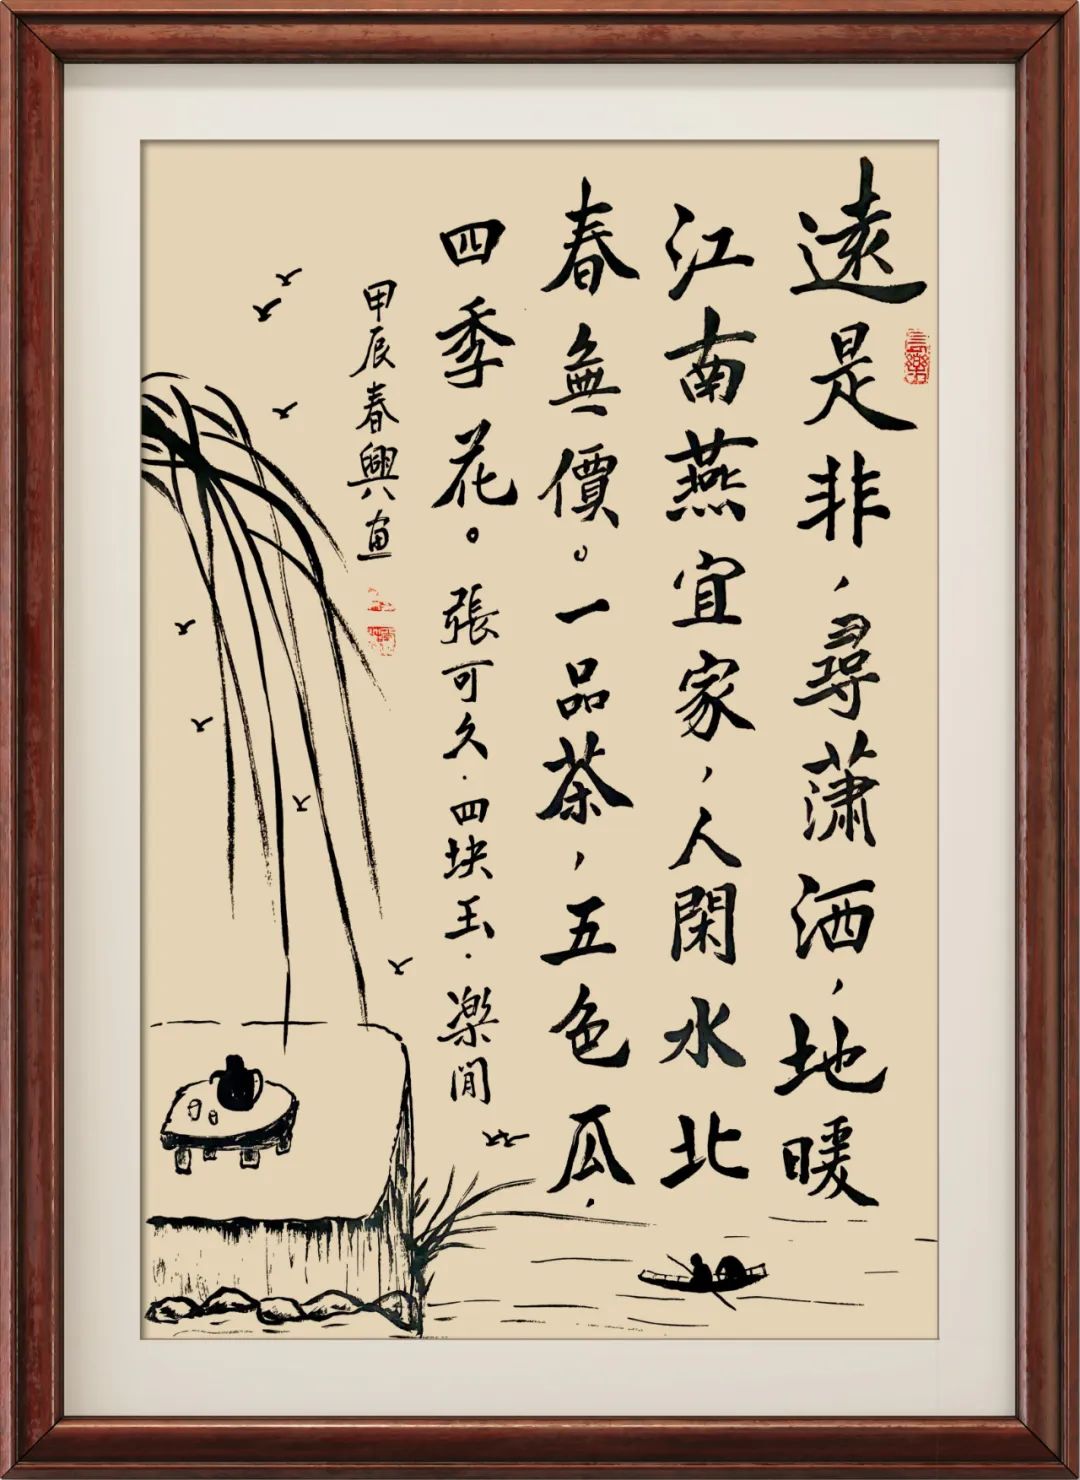 遠是非，尋瀟洒，地暖
江南燕宜家，人閑水北
春無價。一品茶，五色瓜，
四季花。張可久·四块玉·樂閒
甲辰春興画